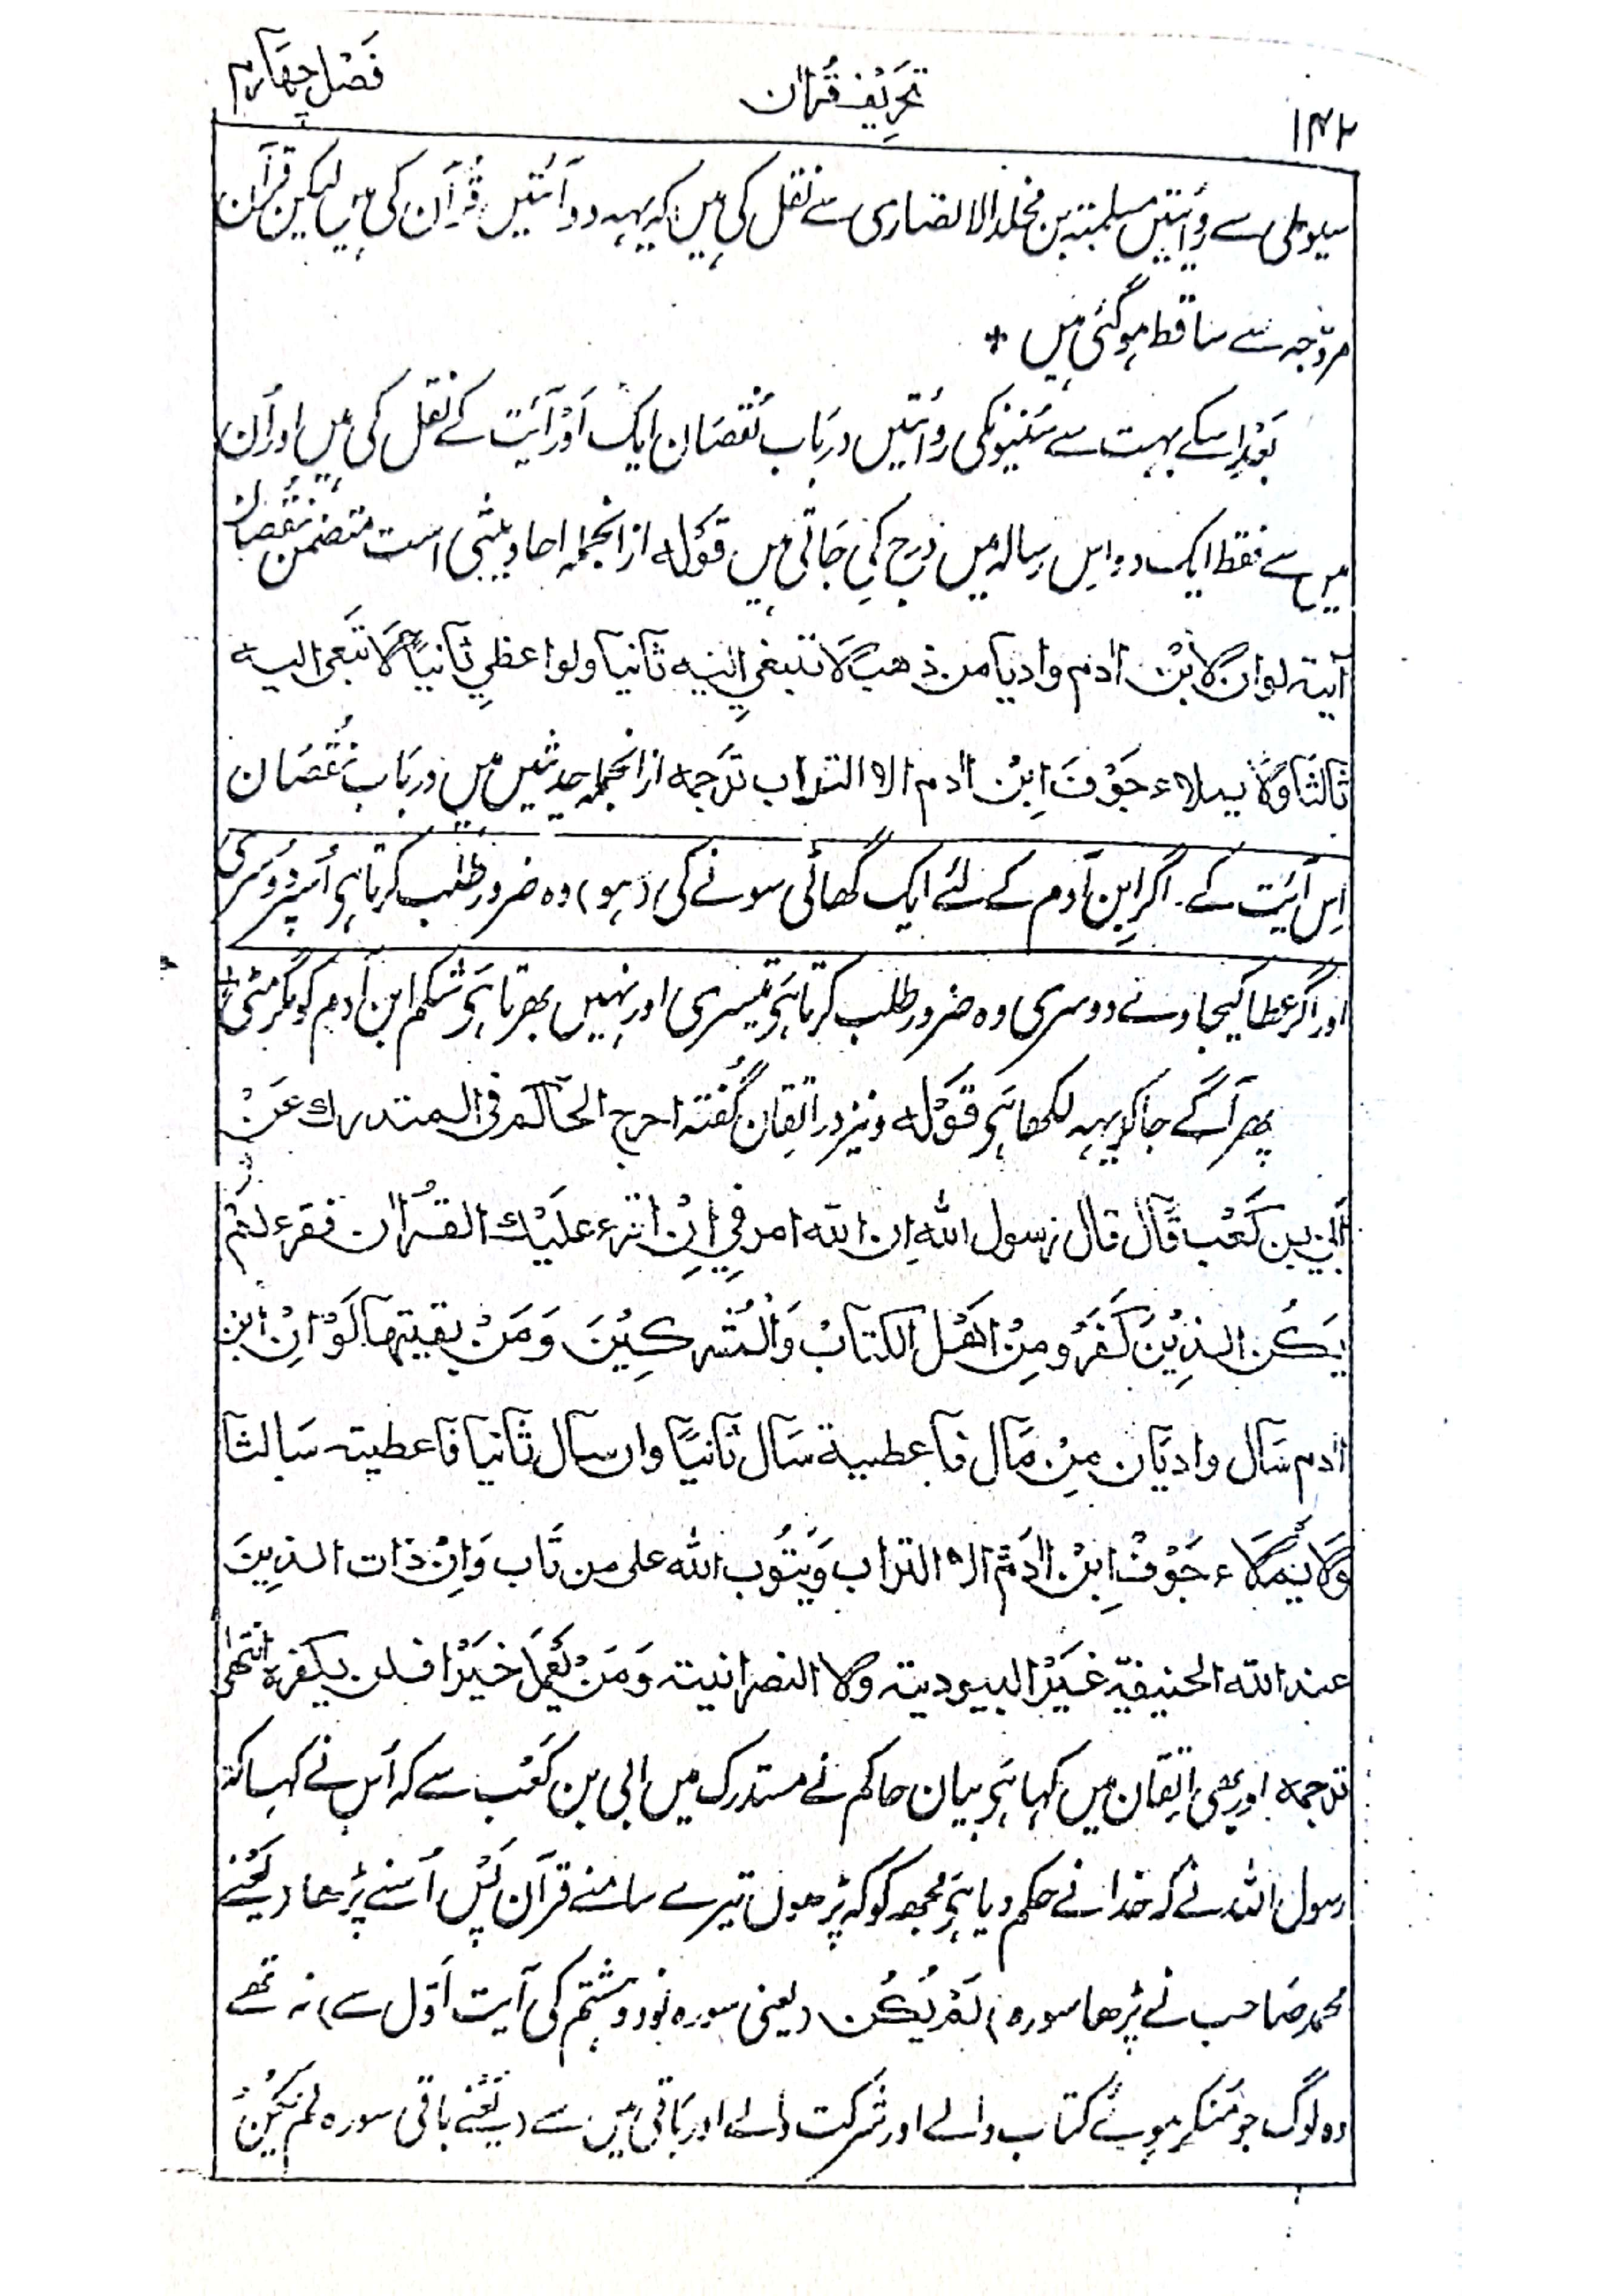 فَصْل چهَآرم
تحَرِیْف قُرآان
۱۴۲
سیوطی سے رِوُایتیں مسلمتہ بن مخلد الانضاری سے نقل کی ہیں کہ یہہ دو آئتیں قُرآن کی ہیں لیکن قرآن
مروّجہ سے ساقط ہوگئی ہیں *
بَعْد اِسکے بہت سے سُنّیونکی روائتیں در بَاب نُقصَان ایک اَوْر آئَیت کے نقل کی ہیں اور اُن
میں سے فقط ایک دو اِس رسالہ میں دَرج کی جَاتی ہیں قَوْلہ ازانجملہ احادیثی است متضمن نُقصَان
آیتہ لوان لابْن اادم وادیا من ذهب لا تبغی الیه ثانیا ولو اعظیِ ثانیاً لا تبغی الیه
ثالثا ولا یملاء جَوْفَ اِبْن اادم الا التراب ترَجمه ازانجملہ حدیثیں ہیں در بَاب نُقصَان
اِس آئیَت کے۔ اگر اِبن آدم کے لئے ایک گھاٹی سونے کی (ہو) وہ ضرور طلب کرتا ہَی اُسپر دُوسری
اور اگر عطا کیجاوے دوسری وہ ضرور طلب کرتا ہَی تیسری اور نہیں بھرتا ہَی شکم ابن آدم کو مگر مٹی *
پھر آگے جا کر یہہ لکھا ہَی قَوْله ونیز در اتقان گُفتہ احرج الحآکم فی المتدرك عَنْ
اُبَیّ بن کَعْب قَالَ قال رسول الله اِن الله امرنِی اِنْ اقرء علَیْك القرُاان فقرء لَمْ
یَکُن الذِیْنَ کَفَرُو مِنْ اَهْل الکتابْ وَالْمُشرِکِیْنَ وَمَنْ بقیتِها لَوْ اِنْ ابْن
اادم سَآل وادیَان مِنْ مَّال فاعطیة سَآل ثانیًا وان سآل ثانیا فاعطیته سَآ لثا
وَلا یَمَلاء جَوْفْ اِبْن اادَم الا التراب وَیَتُوب الله علی من تَاب وَاِنْ ذات الذِینَ
عند الله الحنیفیّة غَیَرْ الیهودیتہ ولا النصرانیتہ وَمَنْ یَعْمَل خیَرْا فلن یکفره انتهیٰ
ترجمه اور بھی اتِقان میں کہا ہَی بیان حاکم نے مستدرک میں ابی بن کَعْب سے کہ اُس نے کہا کہ
رسول اللہ نے کہ خدا نے حکم دیا ہَی مجھ کو کہ پڑھوں تیرے سامنے قرآن پَس اُسنے پڑھا (یَعْنے
محمد صَاحب نے پڑھا سورہ) لَمْ یَکُن (یعنی سورہ نود و ہشتم کی آیت اَوّل سے) نہ تھے
وہ لوگ جو مُنکر ہوئے کتاب والے اور شرکت والے اور بَاقی میں سے (یَعْنے باقی سورہ لَمْ یَکُنْ